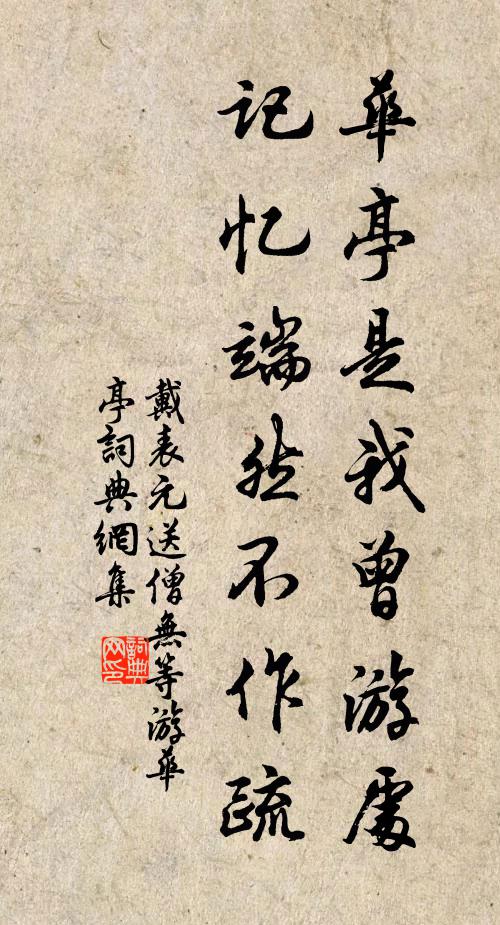 華亭是我曾游處
记忆端然不作疏
戴表元送僧無等游華
亭詞典網集
詞典
网印